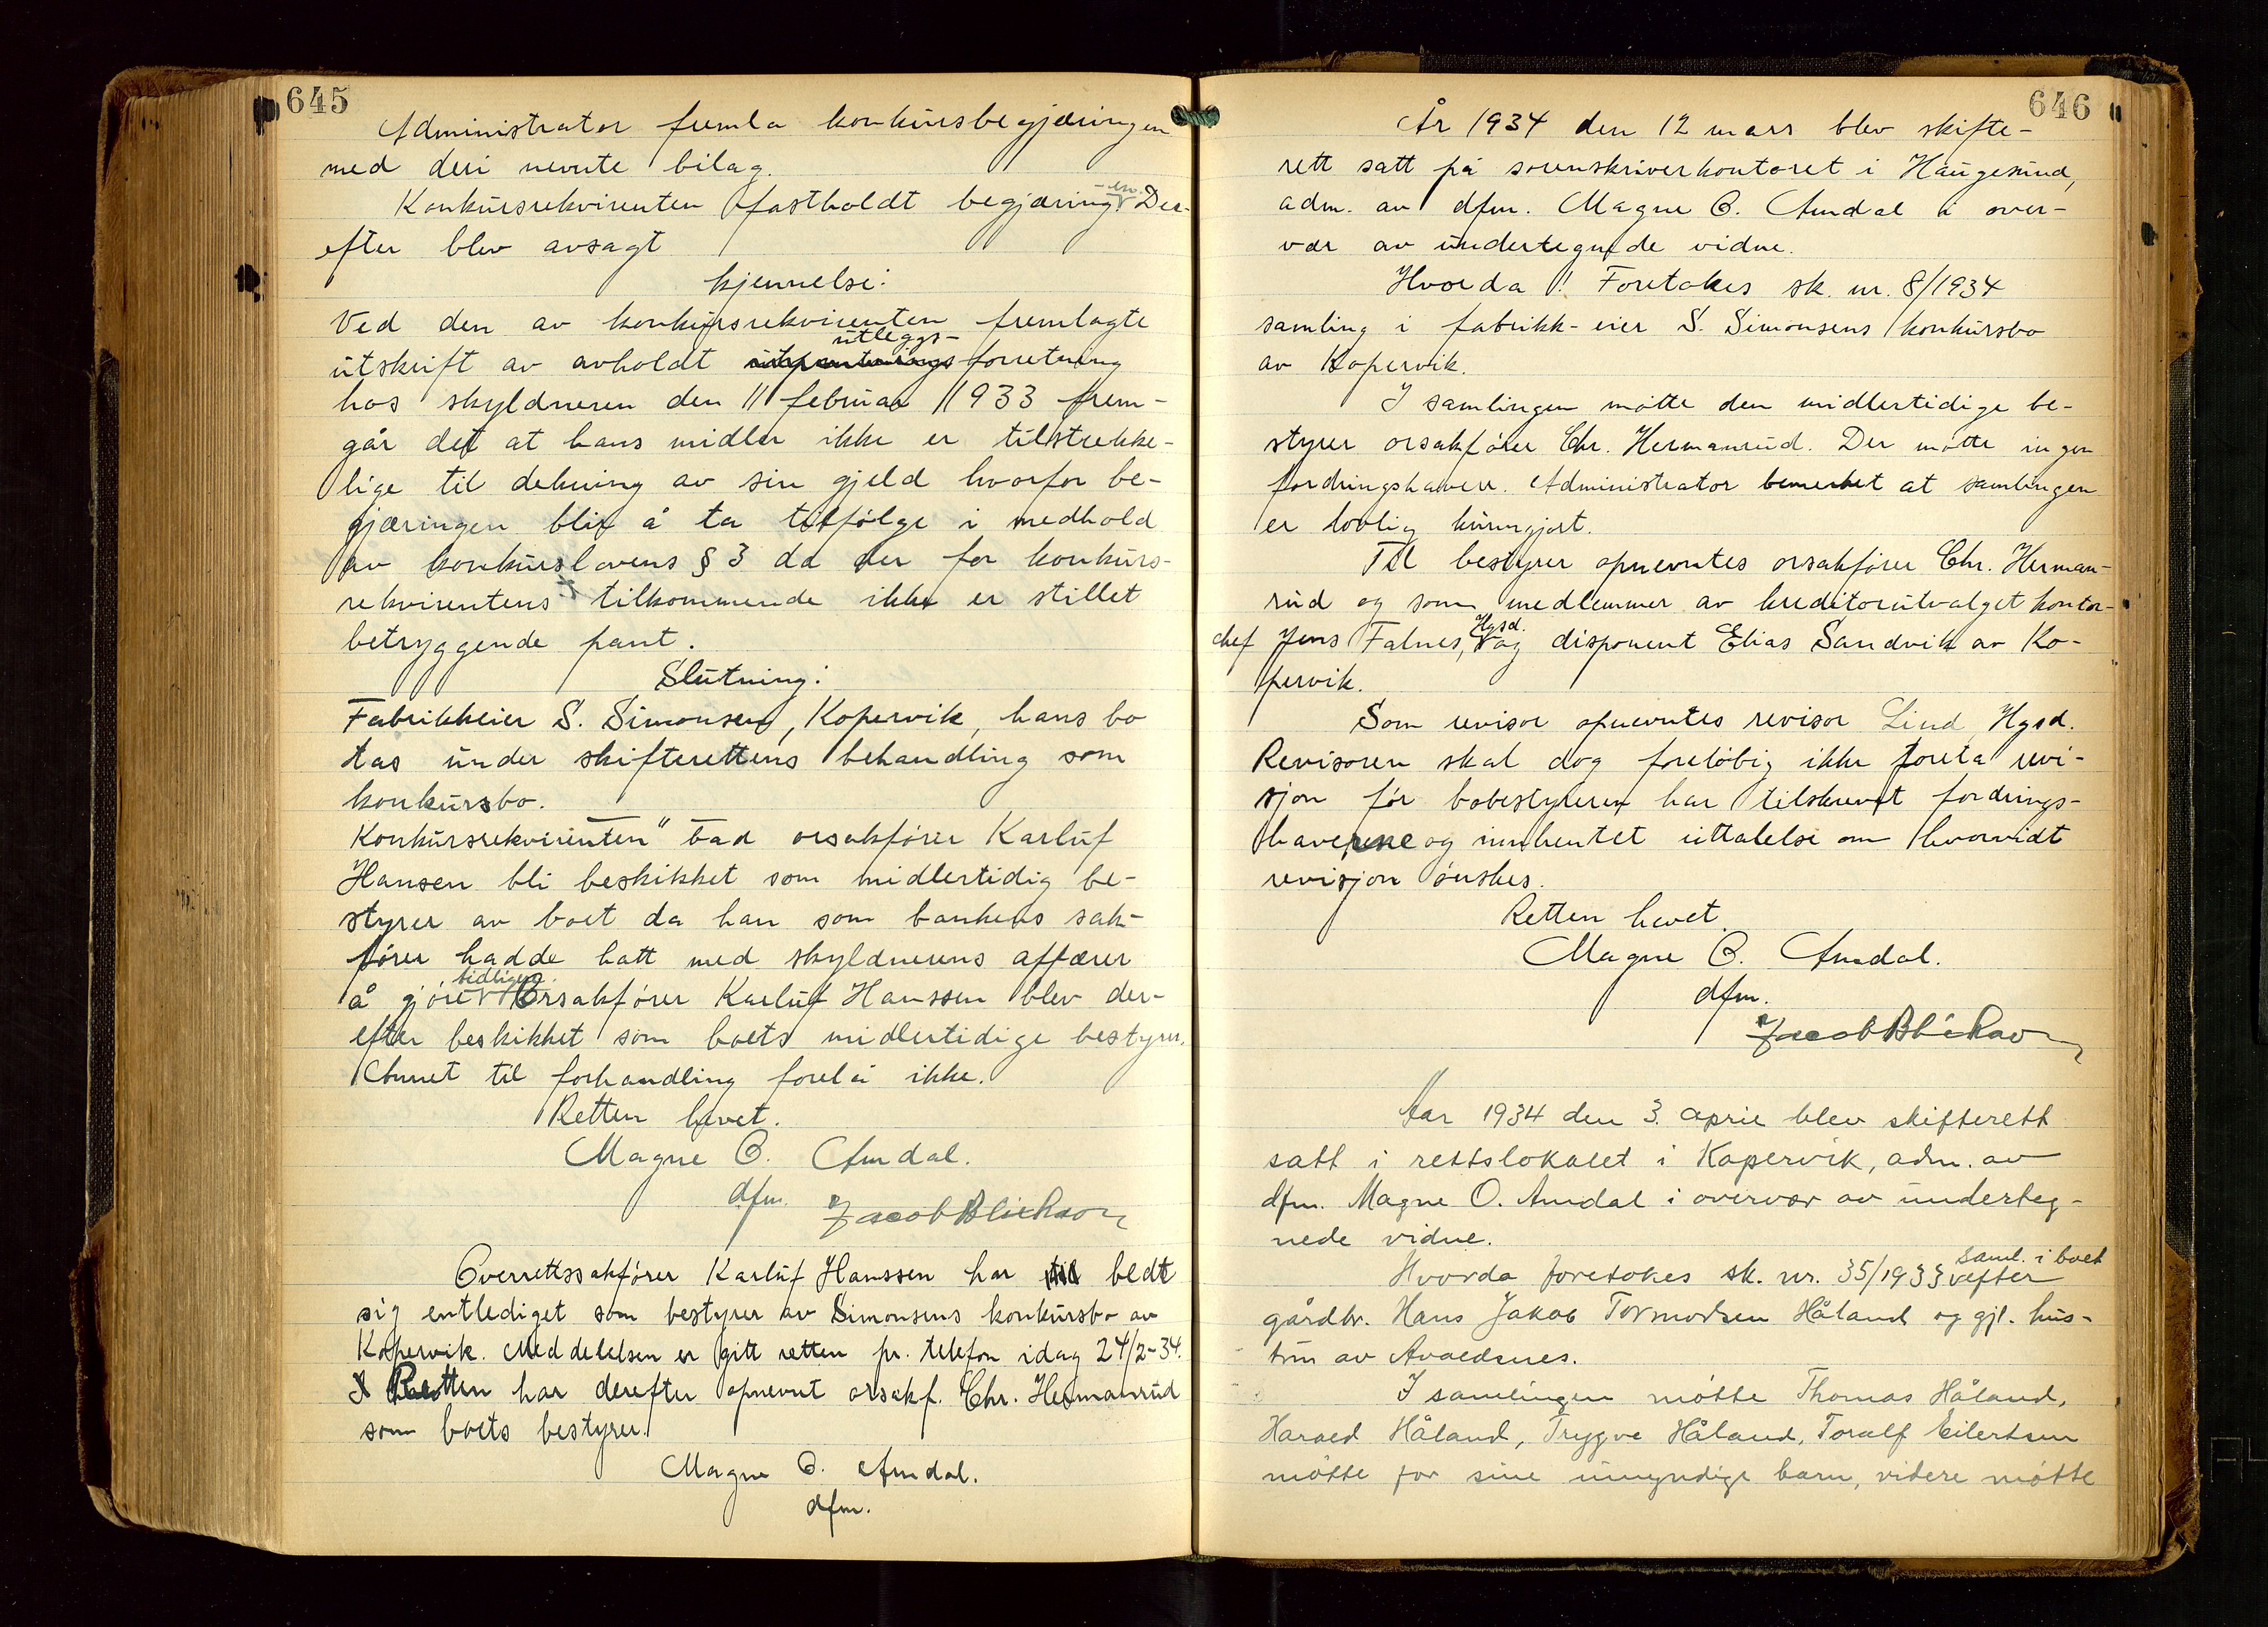 645
Administrator fremla konkursbegjæringen
med deri nevnte bilag.
Konkursrekvirenten fastholdt begjæringen. Der-
efter blev avsagt
kjennelse:
Ved den av konkursrekvirenten fremlagte
utskrift av avholdt utleggs-forretning
hos skyldneren den 11 februar 1933 frem-
går det at hans midler ikke er tilstrekke-
lige til dekning av sin gjeld hvorfor be-
gjæringen blir å ta tilfølge i medhold
av konkurslovens § 3 da der for konkurs-
rekvirentens tilkommende ikke er stillet
betryggende pant.
Slutning:
Fabrikkeier S. Simonsen, Kopervik, hans bo
tas under skifterettens behandling som
konkursbo.
Konkursrekvirenten bad orsakfører Karluf
Hansen bli beskikket som midlertidig be-
styrer av boet da han som bankens sak-
fører hadde hatt med skyldnerens affærer
å gjøre tidligere. Orsakfører Karluf Hanssen blev der-
efter beskikket som boets midlertidige bestyrer.
Annet til forhandling forelå ikke.
Retten hevet.
Magne O. Amdal.
dfm. Jacob Blikson
Overrettssakfører Karluf Hanssen har bedt
sig entlediget som bestyrer av Simonsens konkursbo av
Kopervik. Meddelelsen er gitt retten pr. telefon idag 24/2-34.
Retten har derefter opnevnt orsakf. Chr. Hermanrud
som boets bestyrer.
Magne O. Amdal.
dfm.
646
År 1934 den 12 mars blev skifte-
rett satt på sorenskriverkontoret i Haugesund,
adm. av dfm. Magne O. Amdal i over-
vær av undertegnede vidne.
Hvorda! Foretokes sk. nr. 8/1934
samling i fabrikk-eier S. Simonsens konkursbo
av Kopervik.
I samlingen møtte den midlertidige be-
styrer orsakfører Chr. Hermanrud. Der møtte ingen
fordringshavere. Administrator bemerket at samlingen
er lovlig kunngjort.
Til bestyrer opnevntes orsakfører Chr. Herman-
rud og som medlemmer av kreditorutvalget kontor-
chef Jens Falnes, Hgsd. og disponent Elias Sandvik av Ko-
pervik.
Som revisor opnevntes revisor Lind, Hgsd.
Revisoren skal dog foreløbig ikke foreta revi-
sjon før bobestyreren har tilskrevet fordrings-
haverne og innhentet uttalelse om hvorvidt
revisjon ønskes.
Retten hevet.
Magne O. Amdal.
dfm.
Jacob Blikson
Aar 1934 den 3. april blev skifterett
satt i rettslokalet i Kopervik, adm. av
dfm. Magne O. Amdal i overvær av underteg-
nede vidne.
Hvorda foretokes sk. nr. 35/1933 saml. i boet efter
gårdbr. Hans Jakob Tormodsen Håland og gjl. hus-
tru av Avaldsnes.
I samlingen møtte Thomas Håland,
Harald Håland, Trygve Håland, Toralf Eilertsen
møtte for sine umyndige barn, videre møtte